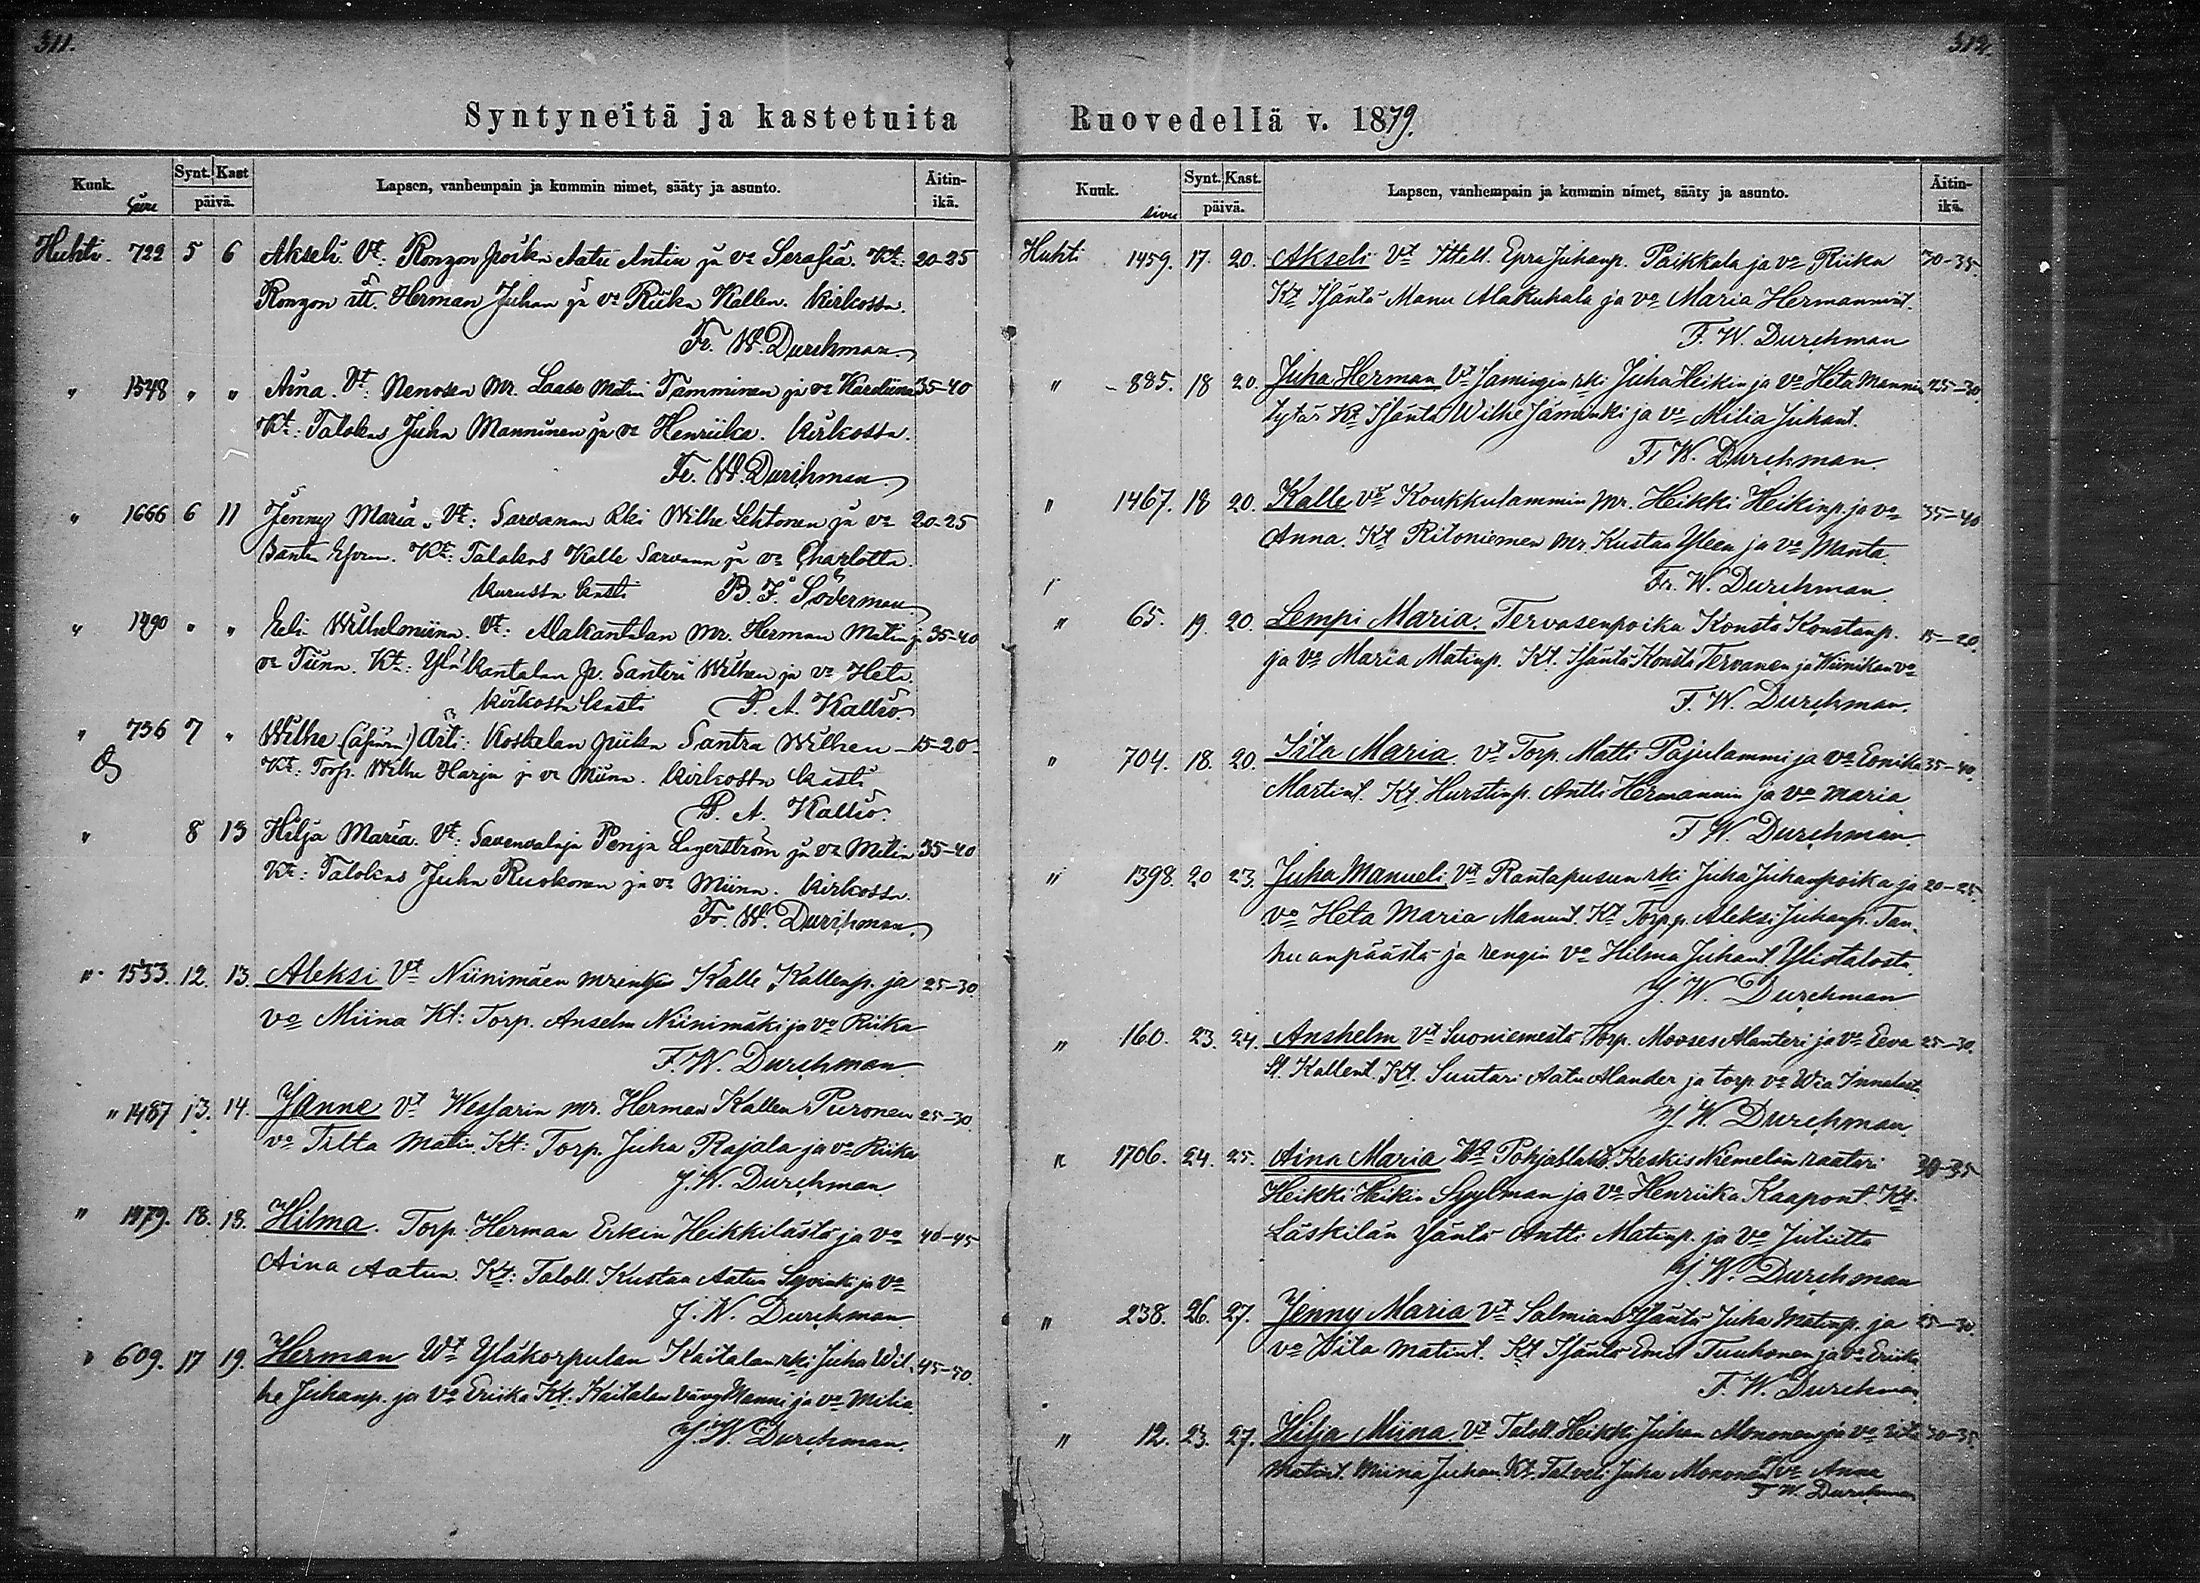 311.
Syntyneitä ja kastetuita
Kuuk. sivu Synt. Kast päivä. Lapsen, vanhempain ja kummin nimet, sääty ja asunto. Äitin-ikä.
Huhti. 722 5 6 Akseli Vt: Ronzon poika Aatu Antin ja vo Serafia. Kt: 20-25
Ronzon itt. Herman Juhan ja vo Riika Kallen. Kirkossa.
Fr. W. Durchman.
" 1548 " " Aina. Vt: Nenosen Mr. Laase Matin Tamminen ja vo Karoliina 35-40
Kt: Talokas Juha Manninen ja vo Henriika. Kirkossa.
Fr. W. Durchman.
" 1666 6 11 Jenny Maria. Vt: Sarvanan Rki Wilhe Lehtonen ja vo 20-25
Santra Efrm. Kt: Talokas Kalle Sarvana ja vo Charlotta.
Kurussa kasti B. F. Söderman.
" 1490 " " Eeli Wilhelmiina. Vt: Alakantalan Mr. Herman Matin ja 35-40
vo Tiina. Kt: Ylä Kantalan Santeri Wilhen ja vo Heta.
Kirkossa kasti P. A. Kallio.
" 736 7 " Wilhe (äpärä) Äiti: Koskelan piika Santra Wilhen 15-20
Kt: Torp. Wilhe Harju ja vo Miina. Kirkossa kasti
P. A. Kallio.
" 8 13 Hilja Maria. Vt: Savenvalaja Penja Lagerström ja vo Milia 35-40
Kt: Talokas Juha Ruokonen ja vo Miina. Kirkossa.
Fr. W. Durchman.
" 1533. 12. 13. Aleksi Vt Niinimäen Kalle Kallenp. ja 25-30.
vo Miina Kt: Torp. Anselm Niinimäki ja vo Riika
F. W. Durchman
" 1487 13. 14. Janne Vt Wessarin mr. Herman Kallen Puronen 25-30
vo Tilta Matin. Kt: Torp. Juha Rajala ja vo Riika
F. W. Durchman
" 1479. 18. 18. Hilma. Torp. Herman Erkin Heikkilästä ja vo 40-45
Aina Aatun. Kt: Taloll. Kustaa Aatun Syvinki ja vo
F. W. Durchman
" 609. 17 19. Herman Wt Yläkorpulan Kaitalan rki Juha Wil- 45-50.
he Juhanp. ja vo Eriika Kt: Kaitalan Manni ja vo Milia
F. W. Durchman.
312.
Ruovedellä v. 1879.
Kuuk. sivu Synt. Kast. päivä. Lapsen, vanhempain ja kummin nimet, sääty ja asunto. Äitin-ikä.
Huhti 1459. 17. 20. Akseli Vt Ittell. Epra Juhanp. Paikkala ja vo Riika 30-35.
Kt Isäntä Manu Alakuhala ja vo Maria Hermannint.
F. W. Durchman
" 885. 18 20. Juha Herman Vt Jamingin rki Juha Heikin ja vo Heta Mannin 25-30
tytär Kt Isäntä Wilhe Jäminki ja vo Milia Juhant.
F. W. Durchman.
" 1467. 18 20. Kalle Vt Koukkulammin mr. Heikki Heikinp. ja vo 35-40
Anna. Kt Ritoniemen mr. Kustaa Yleen ja vo Manta.
Fr. W. Durchman.
" 65. 19. 20. Lempi Maria. Tervasenpoika Konsta Konstanp. 15-20.
ja vo Maria Matinp. Kt. Isäntä Konsta Tervanen ja vo
F. W. Durchman.
" 704. 18. 20. Iita Maria. Vt Torp. Matti Pajulammi ja vo Eenika 35-40.
Martint. Kt. Hurstinp. Antti Hermannin ja vo Maria
F W. Durchman.
" 1398. 20 23. Juha Manueli Vt Rantapusun rki Juha Juhanpoika ja 20-25.
vo Heta Maria Manunt. Kt Torp.p. Aleksi Juhanp. Tan-
huanpäästä ja rengin vo Hilma Juhant. Ylistalosta.
F. W. Durchman
" 160. 23. 24. Anshelm Vt Suoniemestä Torp. Mooses Alanteri ja vo Eeva 25-30.
St. Kallent. Kt. Suutari Aatu Alander ja torp. vo Wia
F. W. Durchman.
" 1706. 24. 25. Aina Maria Wt Pohjaslahd. Keskis Niemelän raatari 30-35
Heikki Heikin Syylman ja vo Henriika Kaapont. Kt.
Läskilän Isäntä Antti Matinp. ja vo Juliitta
F. W. Durchman
" 238. 26. 27. Jenny Maria Vt Salmian Isäntä Juha Matinp. ja 25-30.
vo Iita Matint. Kt Isäntä Emil Tuuhonen ja vo Eriika
F. W. Durchman
" 12. 23. 27. Hilja Miina Vt Taloll. Heikki Juhan Mononen ja vo Iita 30-35.
Matint. Miina Juhan. Kt. Juha Mononen ja vo Anna
F W. Durchman